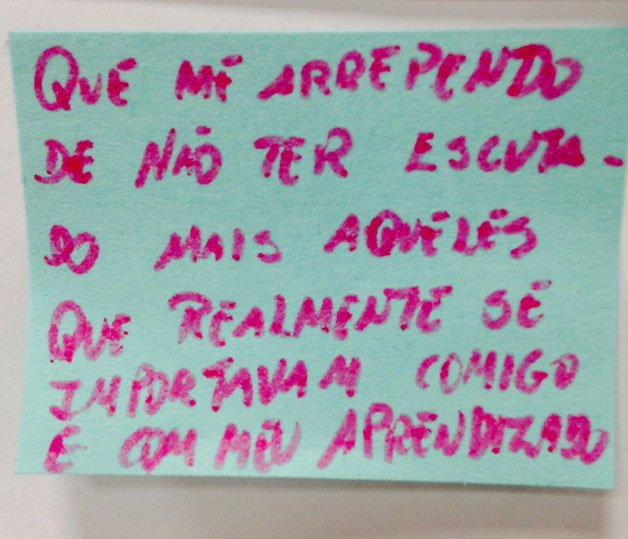 QUE ME ARREPENDO
DE NÃO TER ESCUTA-
DO MAIS AQUELES
QUE REALMENTE SE
IMPORTAVAM COMIGO
E COM MEU APRENDIZADO